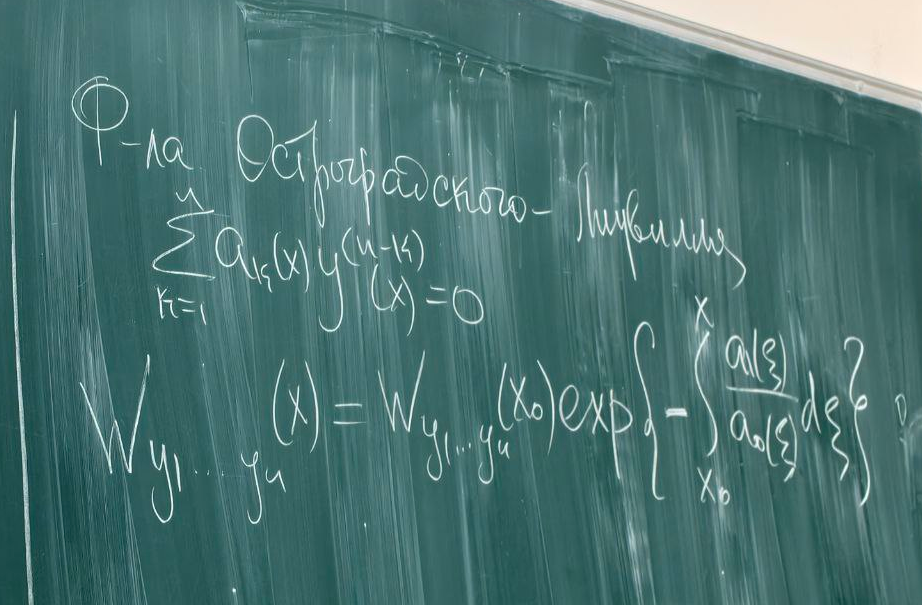 Ф-ла Остроградского-Лиувилля
∑_{k=1}^{n} a_k(x) y^{(n-k)}(x) = 0
W_{y_1...y_n}(x) = W_{y_1...y_n}(x_0) exp{ - ∫_{x_0}^{x} a_1(ξ)/a_0(ξ) dξ }